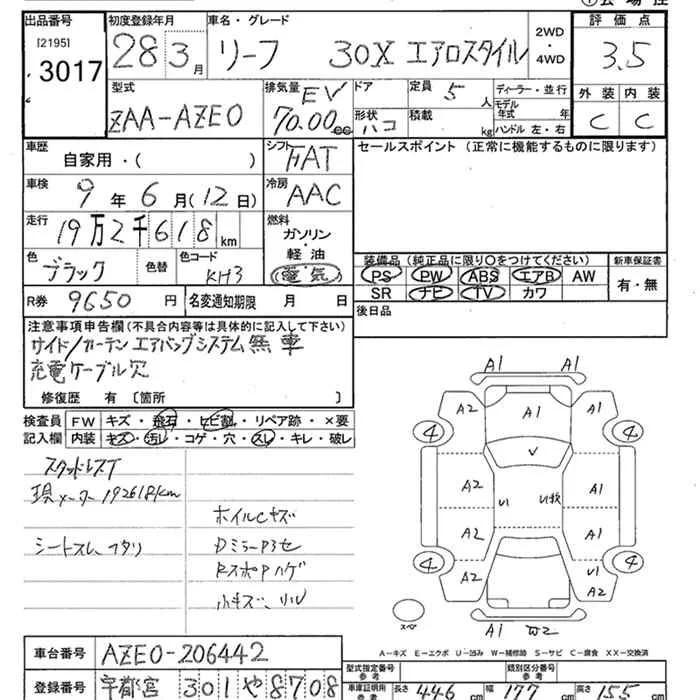 ① 会場 控
出品番号 初度登録年月 車名・グレード 評価点
[2195]
3017
28 3月 リーフ 30X エアロスタイル
2WD・4WD
3.5
型式 排気量 ドア 定員 ディーラー・並行 外装 内装
ZAA-AZE0 EV 70.00cc 5人 モデル年式 年 C C
形状 ハコ 積載 kg ハンドル 左・右
車歴 自家用・( ) シフト FAT セールスポイント (正常に機能するものに限ります)
車検 9年6月(12日) 冷房 AAC
走行 19万2千618km 燃料 ガソリン・軽油 (電気)
色 ブラック 色替 色コード KH3
装備品 (純正品に限り○をつけてください) 新車保証書
PS PW ABS エアB AW 有・無
SR ナビ TV カワ
R券 9650円 名変通知期限 月 日 後日品
注意事項申告欄(不具合内容等は具体的に記入して下さい)
サイド/カーテンエアバッグシステム無車
充電ケーブル欠
修復歴 有 〔箇所 〕
検査員 FW キズ・飛石・ヒビ割・リペア跡・×要
記入欄 内装 キズ・汚レ・コゲ・穴・スレ・キレ・破レ
スタッドレスT
現メーター 192618km
ホイルCキズ
シートスレ、ヘタリ
小キズ、リル
A1 A1
A2 A1 A1
4 4
V
A2 U1 A1
A2 A1
4 4
A2 U1 A2
スペ
A1 W2
A-キズ E-エクボ U-凹み W-補修跡 S-サビ C-腐食 XX-交換済
車台番号 AZE0-206442
型式指定番号 参考 類別区分番号 参考
登録番号 宇都宮 301 や 8708
車庫証明用 参考 長さ 446cm 幅 177cm 高さ 155cm